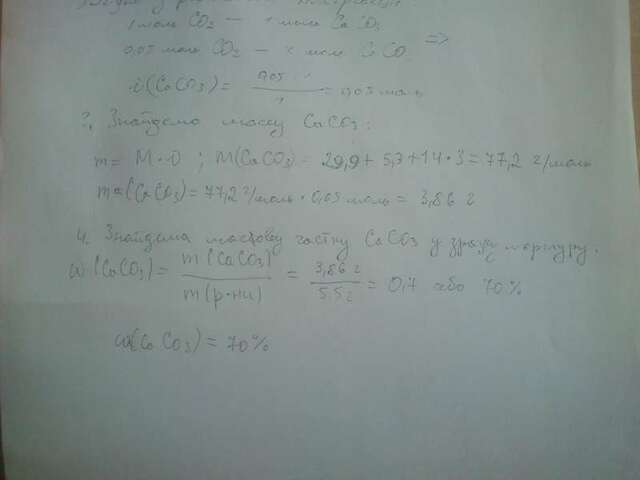 1 моль CO₂ — 1 моль CaCO₃
0,05 моль CO₂ — x моль CaCO₃ =>
ν(CaCO₃) = 0,05 · 1 / 1 = 0,05 моль
3. Знайдемо массу CaCO₃:
m = M · ν ; M(CaCO₃) = 29,9 + 5,3 + 14 · 3 = 77,2 г/моль
m = (CaCO₃) = 77,2 г/моль · 0,05 моль = 3,86 г
4. Знайдемо масову частку CaCO₃ у зразку мармуру.
ω(CaCO₃) = m(CaCO₃) / m(р-ни) = 3,86 г / 5,5 г = 0,7 або 70%
ω(CaCO₃) = 70%